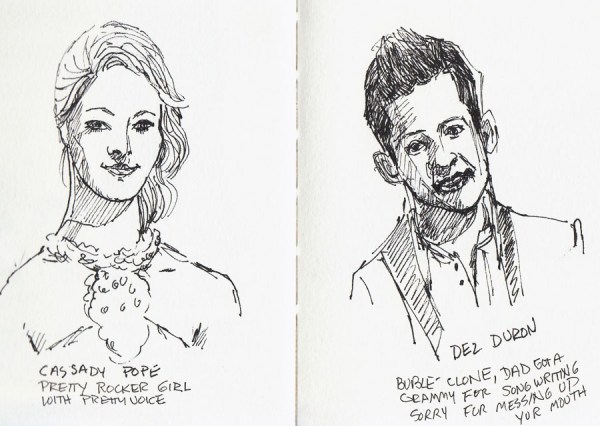 CASSADY POPE
PRETTY ROCKER GIRL
WITH PRETTY VOICE
DEZ DURON
BUBLE- CLONE, DAD GOT A
GRAMMY FOR SONGWRITING
SORRY FOR MESSING UP
YOR MOUTH